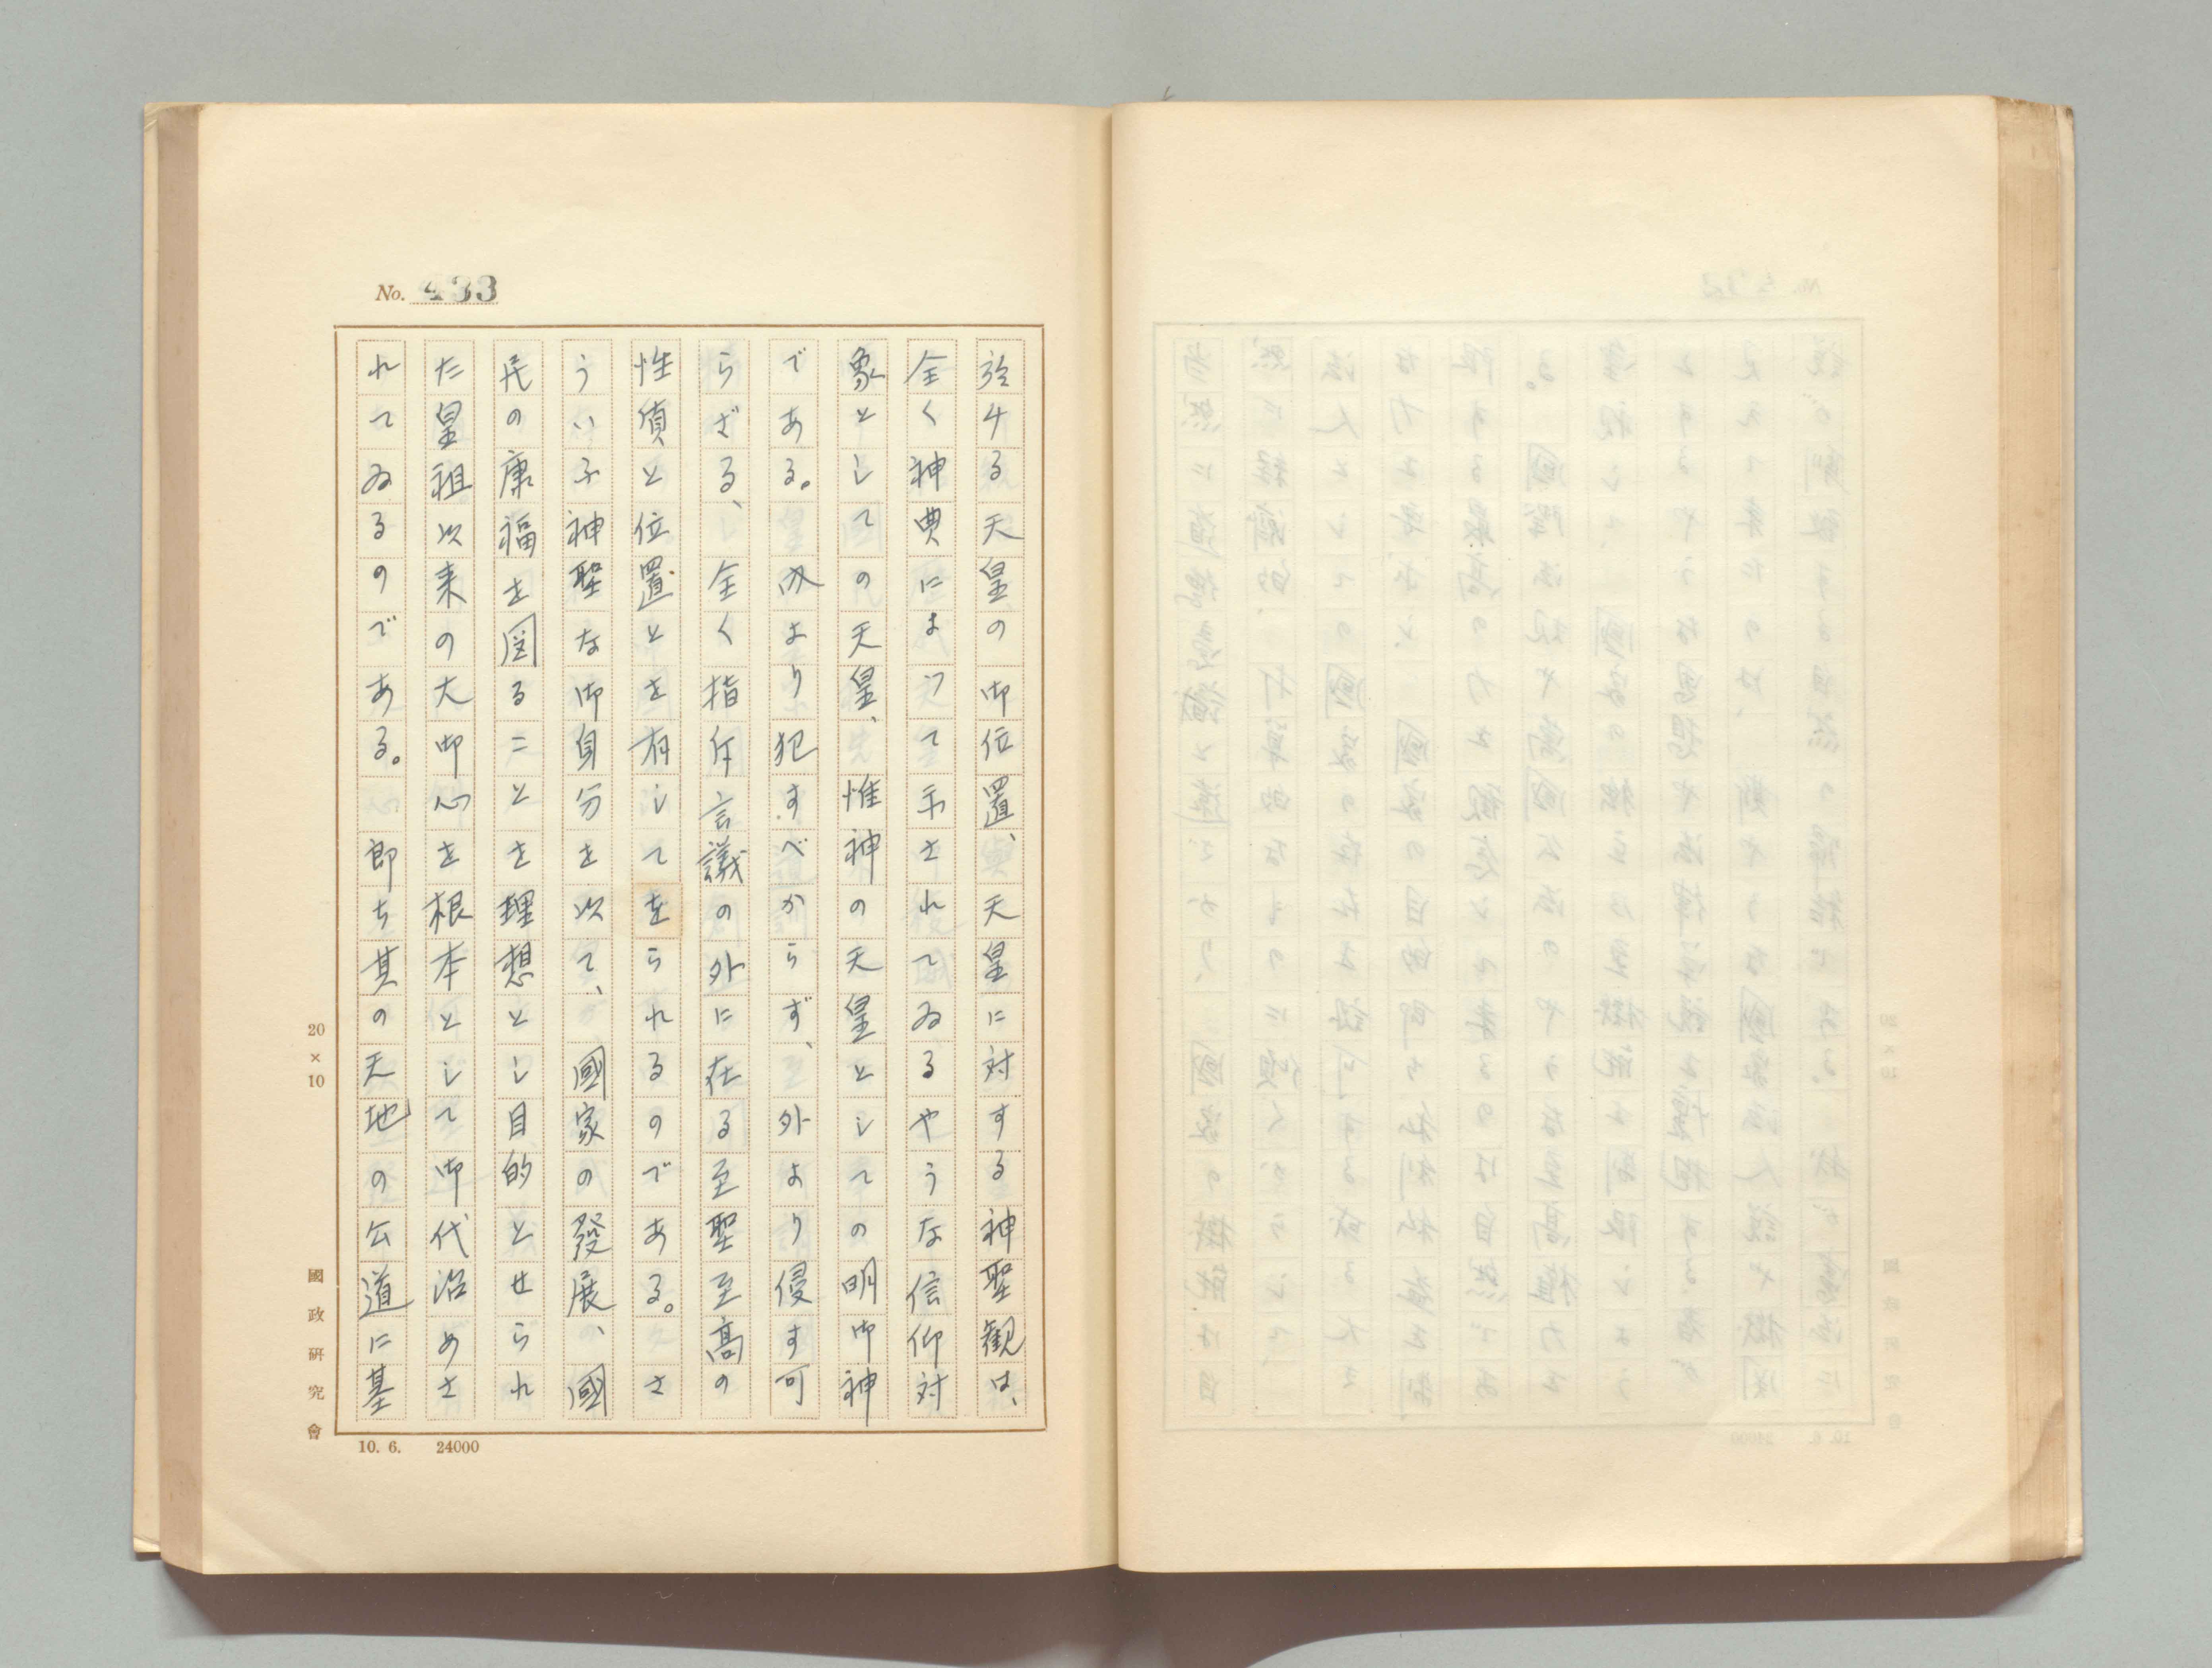 No. 433
於ける天皇の御位置、天皇に対する神聖観は、
全く神典によつて示されてゐるやうな信仰対
象としての天皇、惟神の天皇としての明御神
である。内より犯すべからず、外より侵す可
らざる、全く指斥言議の外に在る至聖至高の
性質と位置とを有してをられるのである。さ
ういふ神聖な御自分を以て、國家の發展、國
民の康福を図ることを理想とし目的とせられ
た皇祖以来の大御心を根本として御代治めさ
れてゐるのである。即ち其の天地の公道に基
20×10
國政研究會
10. 6. 24000